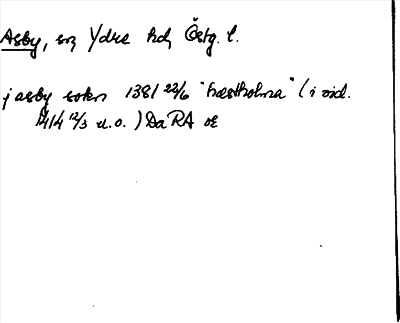 Asby, sn Ydre hd, Östg. l.
j asby sokn 1381 22/6 "hæstholma" (i vid.
1414 12/3 u.o.) Da RA oe